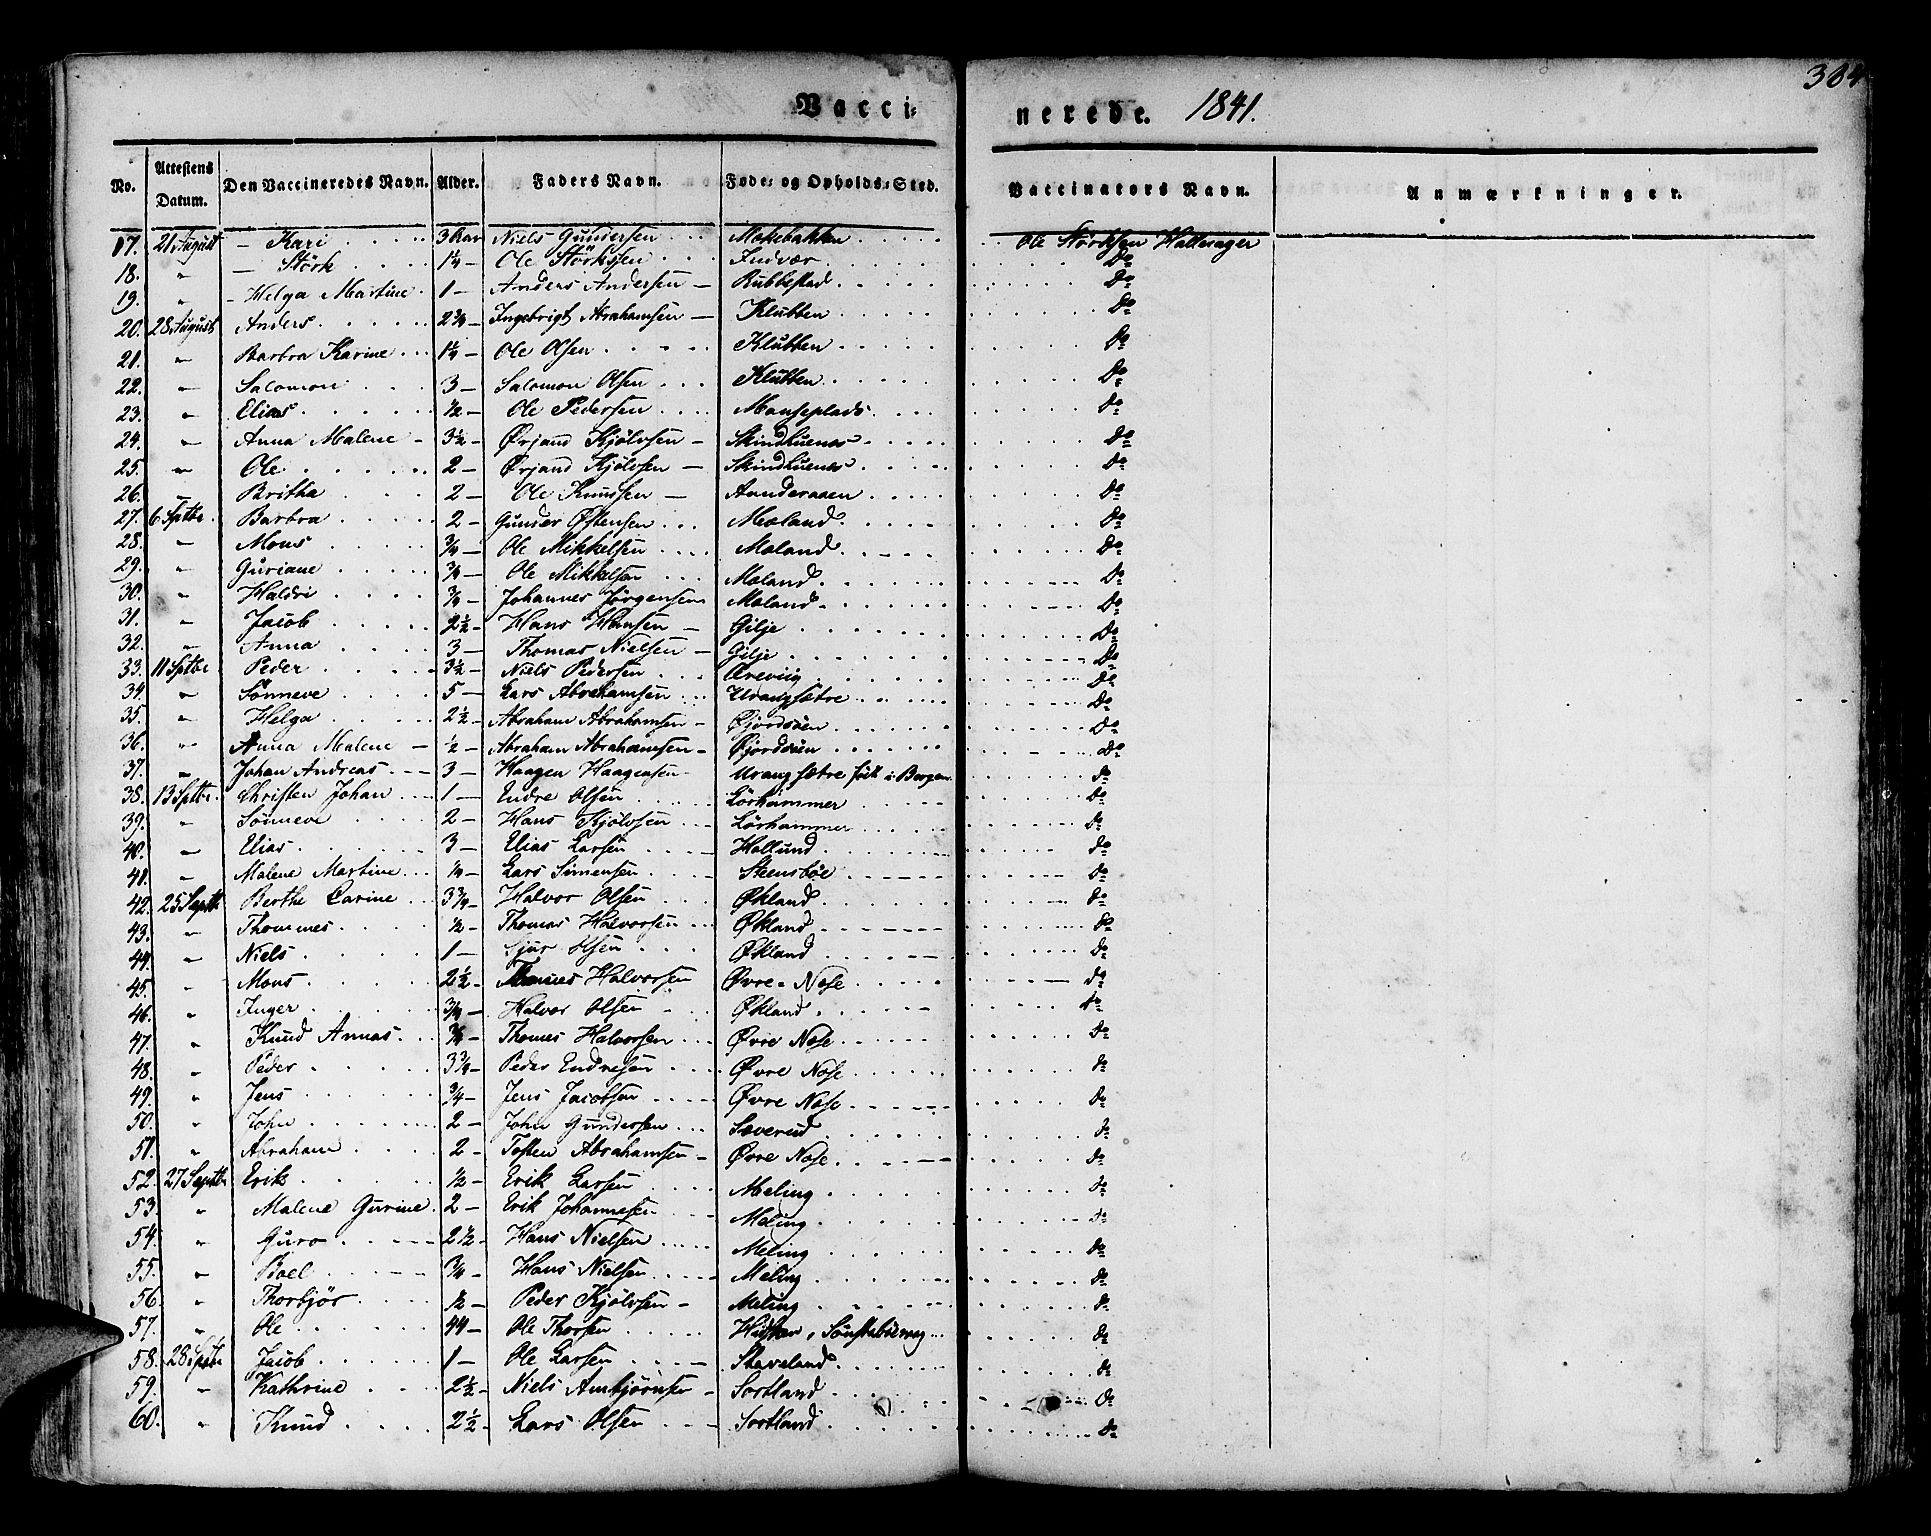 304
Vaccinerede. 1841.
No. Attestens Datum. Den Vaccineredes Navn. Alder. Faders Navn. Føde- og Opholds-Sted. Vaccinators Navn. Anmærkninger.
17. 21 August - Kari 3 Niels Gundersen Mokebakken Ole Størksen Hattesager
18. " - Størk 1¼ Ole Størksen Indvær Do
19. " - Helga Martine 1 - Anders Andersen - Rubbestad Do
20. 28 August Anders 2¾ - Ingebrigt Abrahamsen - Klubben Do
21. " Barbra Karine 1¼ - Ole Olsen Klubben Do
22. " Salomon 3 - Salomon Olsen Klubben Do
23. " Elias ½ - Ole Pedersen Manseplads Do
24. " Anna Malene - 3½ - Ørjand Kjølvsen - Skindhuenes Do
25. " Ole 2 - Ørjand Kjølvsen - Skindhuenes Do
26. " Britha 2 - Ole Knussen - Aanderaaen Do
27. 6 Sptbr. Barbra 2 - Gunder Østensen Mæland Do
28. " Mons ¾ - Ole Mikkelsen Mæland Do
29. " Guriane ¾ - Ole Mikkelsen Mæland Do
30. " Haldri ¾ - Johannes Jørgensen Mæland Do
31. " Jacob 2½ - Hans Hansen - Gilje Do
32. " Anna 3 - Thomas Nielsen - Gilje Do
33. 11 Sptbr Peder 3½ - Niels Pedersen Ærevig Do
34. " Sønneve 5 - Lars Abrahamsen Urangsætre Do
35. " Helga 2½ - Abraham Abrahamsen - Gjordøen Do
36. " Anna Malene - ½ - Abraham Abrahamsen - Gjordøen Do
37. " Johan Andreas 3 - Haagen Haagensen - Urangsætre født i Bergen do
38. 13 Sptbr. Christen Johan 1 - Endre Olsen Lørhammer do
39. " Sønneve 2 - Hans Kjølvsen Lørhammer do
40. " Elias 3 - Elias Larsen Hollund do
41. " Malene Martine ¼ - Lars Simensen Steensbøe do
42. 25 Septbr Berthe Carine 3¾ - Halvor Olsen Økland do
43. " Thommes ½ - Thomas Halvorsen Økland do
44. " Niels 1 - Sjur Olsen Økland do
45. " Mons 2½ - Thomes Halvorsen Øvre - Nose do
46. " Inger ¾ - Halvor Olsen Økland do
47. " Knud Annas ¾ - Thomes Halvorsen Øvre Nose do
48. " Peder 3¾ - Peder Endresen Øvre Nose do
49. " Jens ¾ - Jens Jacobsen Øvre Nose do
50. " John 2 - John Gundersen Sæverud do
51. " Abraham 2 - Tosten Abrahamsen - Øvre Nose do
52. 27 Septbr Erik ½ - Erik Larsen Meling do
53. " Malene Gurine 2 - Erik Johannesen Meling do
54. " Guro 2½ - Hans Nielsen Meling do
55. " Boel ¾ - Hans Nielsen Meling do
56. " Thorbjør ½ - Peder Kjølvsen - Meling do
57. " Ole 44 - Ole Thorsen do
58. 28 Sptbr Jacob 1 - Ole Larsen Staveland do
59. " Kathrine 2½ - Niels Ambjørnsen - Sortland do
60. " Knud 2½ - Lars Olsen Sortland do